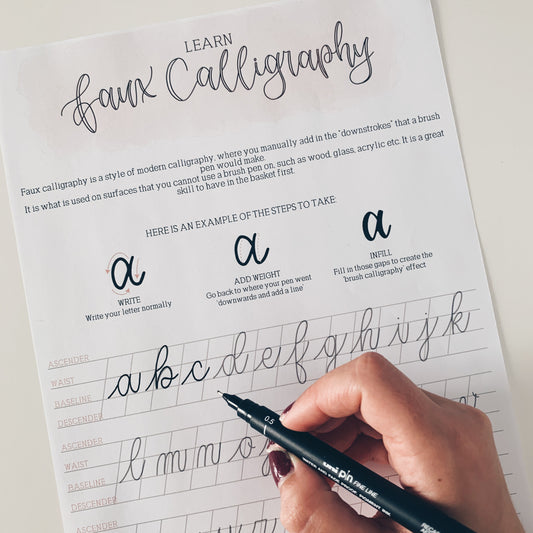 LEARN
Faux Calligraphy
Faux calligraphy is a style of modern calligraphy, where you manually add in the "downstrokes" that a brush
pen would make.
It is what is used on surfaces that you cannot use a brush pen on, such as wood, glass, acrylic etc. It is a great
skill to have in the basket first.
HERE IS AN EXAMPLE OF THE STEPS TO TAKE:
a a a
WRITE
Write your letter normally
ADD WEIGHT
Go back to where your pen went
'downwards and add a line'
INFILL
Fill in those gaps to create the
'brush calligraphy' effect
ASCENDER
WAIST
BASELINE
DESCENDER
a b c d e f g h i j k
ASCENDER
WAIST
BASELINE
DESCENDER
l m n o
ASCENDER
0.5 uni pin FINE LINE